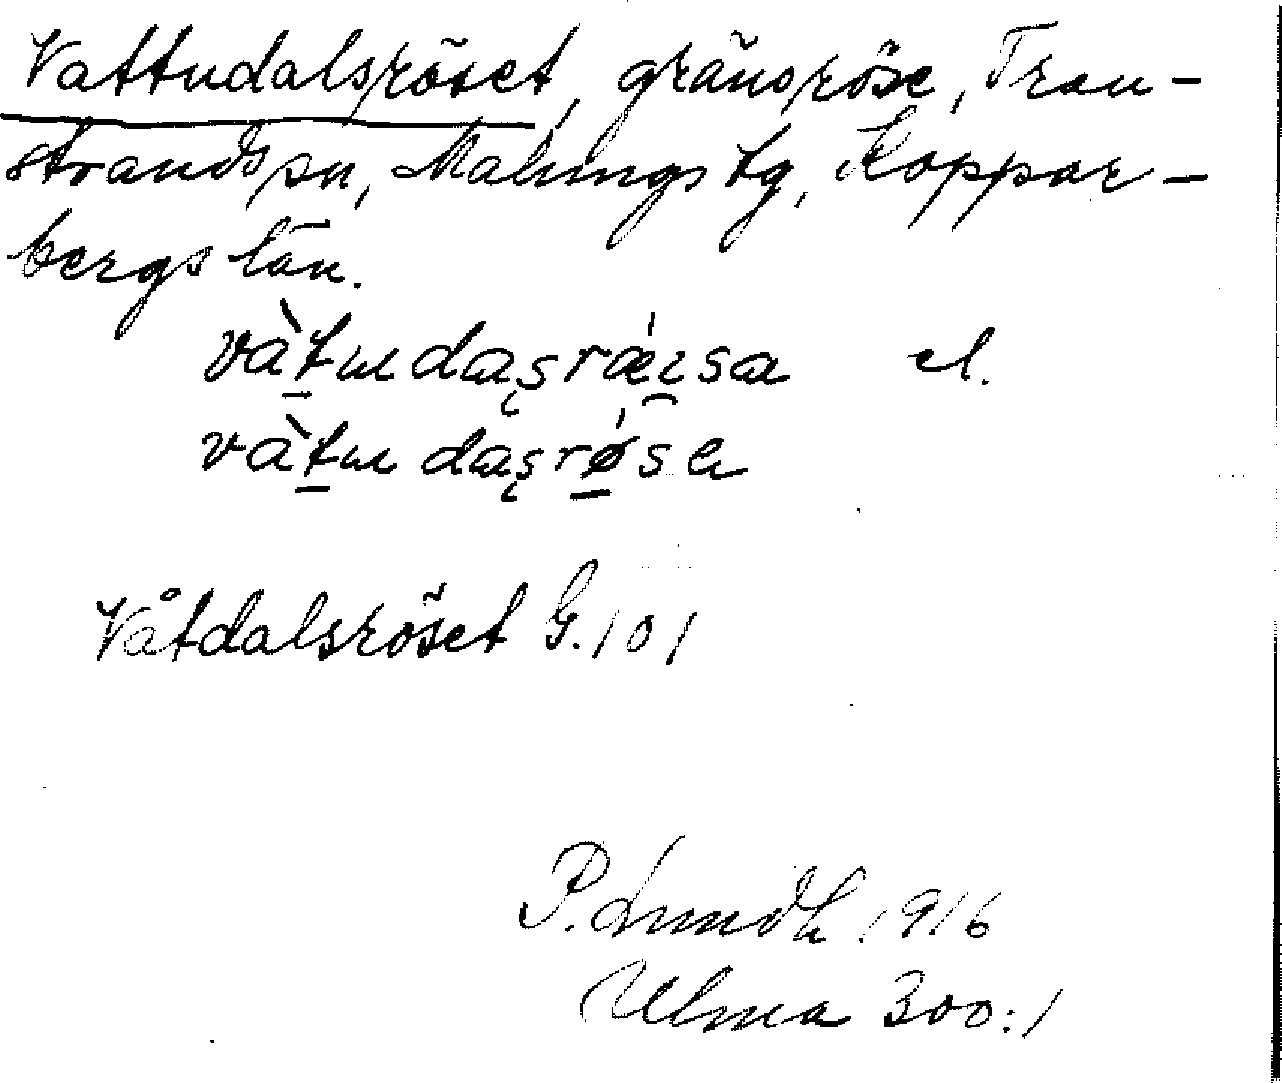 Vattudalsröset, gränsröse, Tran-
strands sn, Malungs tg, Koppar-
bergs län.
vàt̠ɯdaşrǽɪsa el.
vàt̠ɯdaşrǿ̠sa
Våtdalsröset G. 101
P. Lundh 1916
Ulma 300:1